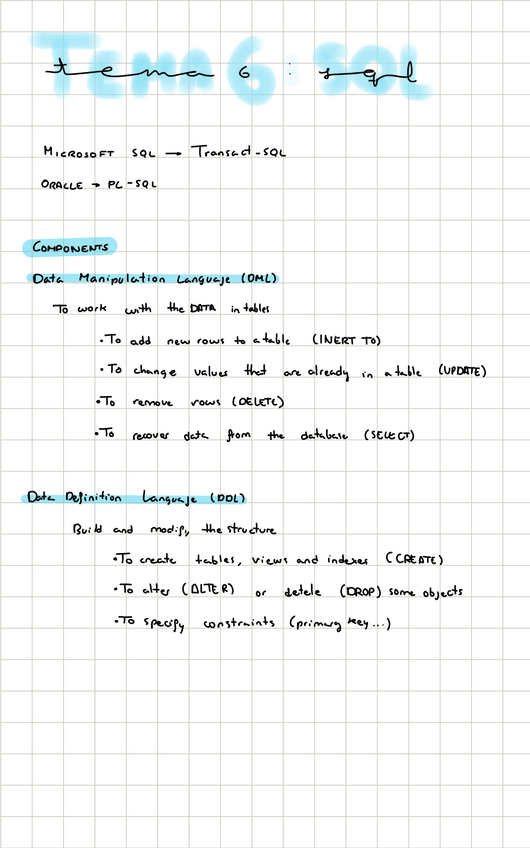 Tema 6: SQL
tema 6 : sql
MICROSOFT SQL → Transact-SQL
ORACLE → PL-SQL
COMPONENTS
Data Manipulation Language (DML)
To work with the DATA in tables
•To add new rows to a table (INERT TO)
•To change values that are already in a table (UPDATE)
•To remove rows (DELETE)
•To recover data from the database (SELECT)
Data Definition Language (DDL)
Build and modify the structure
•To create tables, views and indexes (CREATE)
•To alter (ALTER) or detele (DROP) some objects
•To specify constraints (primary key...)